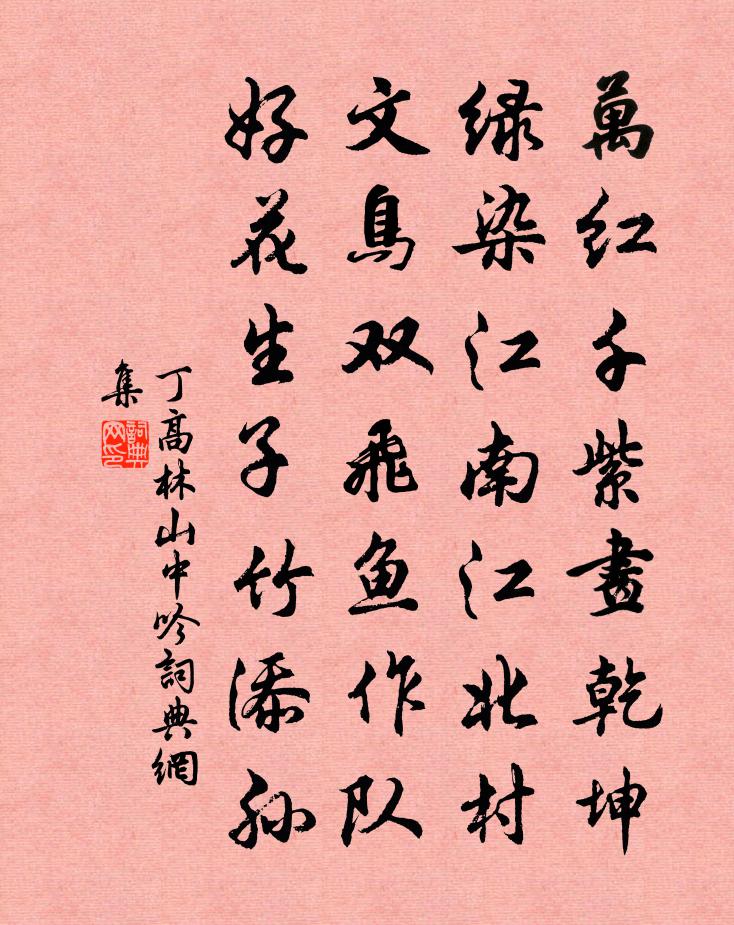 萬红千紫畫乾坤
绿染江南江北村
文鳥双飛鱼作队
好花生子竹添孙
丁高林山中吟詞典網
集
詞典
网印